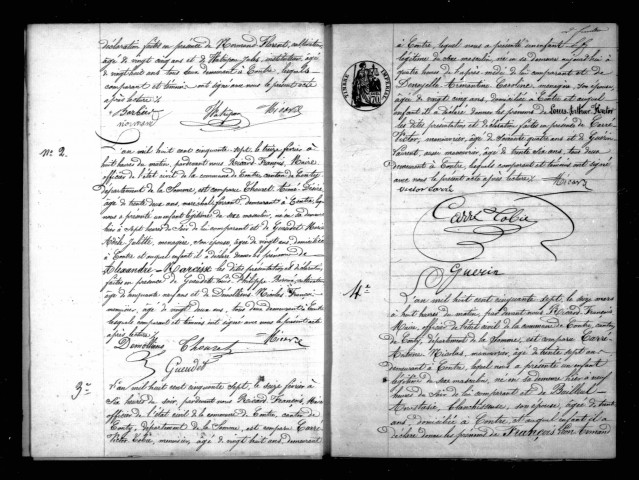 déclaration faites en présence de Normand Florent, cultivateur
âgé de vingt cinq ans et de Watigon Jules, instituteur, âgé
de vingt huit ans tous deux demeurant à Contre, lesquels
comparant et témoins ont signé avec nous le présent acte
après lecture
Barbier Watigon Ricard
normand
N° 2.
L'an mil huit cent cinquante sept, le treize février à
huit heures du matin, pardevant nous Ricard François, Maire
officier de l'état civil de la commune de Contre, canton de Conty
département de la Somme, est comparu Thouret Aimé Désiré
âgé de trente deux ans, maréchal ferrant, demeurant à Contre, lequel
nous a présenté un enfant légitime du sexe masculin, né en sa demeure
hier à sept heures du soir de lui comparant et de Gueudet Marie
Adèle Juliette, ménagère, son épouse, âgée de vingt ans, domiciliée
à Contre et auquel enfant il a déclaré donner les prénoms de
Alexandre Narcisse les dites présentation et déclaration
faites en présence de Gueudet Louis Philippe
âgé de cinquante neuf ans et de Demollens Nicolas François
âgé de vingt deux ans, tous deux demeurant à Contre
lesquels comparant et témoins ont signé avec nous le présent acte
après lecture
Demollens Thouret Ricard
Gueudet
3°
L'an mil huit cent cinquante sept, le seize février à
six heures du soir, pardevant nous Ricard François, Maire
officier de l'état civil de la commune de Contre, canton de
Conty, département de la Somme, est comparu Carré
Victor Tobie, menuisier, âgé de vingt huit ans, demeurant
à Contre, lequel nous a présenté un enfant
légitime du sexe masculin, né en sa demeure aujourd'hui à
quatre heures de l'après midi de lui comparant et de
Clementine Caroline, ménagère, son épouse,
âgée de vingt cinq ans, domiciliée à Contre et auquel
enfant il a déclaré donner les prénoms de Louis Arthur
les dites présentation et déclaration faites en présence de Carré
Victor, menuisier, âgé de soixante quatre ans et de Guérin
Laurent, aussi menuisier, âgé de trente six ans, tous deux
demeurant à Contre, lesquels comparant et témoins ont signé
avec nous le présent acte après lecture Ricard
victor Carré
Carré Tobie
Guérin
4°
L'an mil huit cent cinquante sept, le dix mars
à huit heures du matin, pardevant nous Ricard François
Maire, officier de l'état civil de la commune de Contre, canton
de Conty, département de la Somme, est comparu Carré
Antoine Nicolas, manouvrier, âgé de trente sept ans
demeurant à Contre, lequel nous a présenté un enfant
légitime du sexe masculin, né en sa demeure hier à neuf
heures du soir de lui comparant et de
Anastasie, blanchisseuse, son épouse, âgée de trente
ans, domiciliée à Contre, et auquel enfant il a
déclaré donner les prénoms de François Léon Armand
TIMBRE IMPERIAL